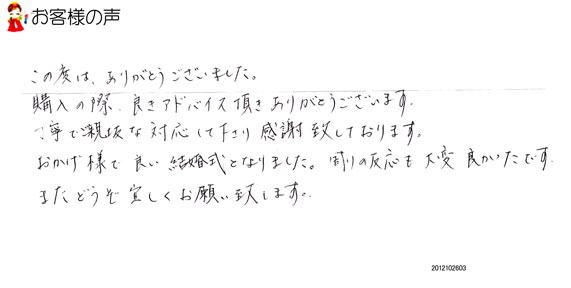 お客様の声
この度は、ありがとうございました。
購入の際、良きアドバイス頂きありがとうございます。
丁寧で親切な対応して下さり感謝致しております。
おかげ様で良い結婚式となりました。周りの反応も大変良かったです。
またどうぞ宜しくお願い致します。
2012102603